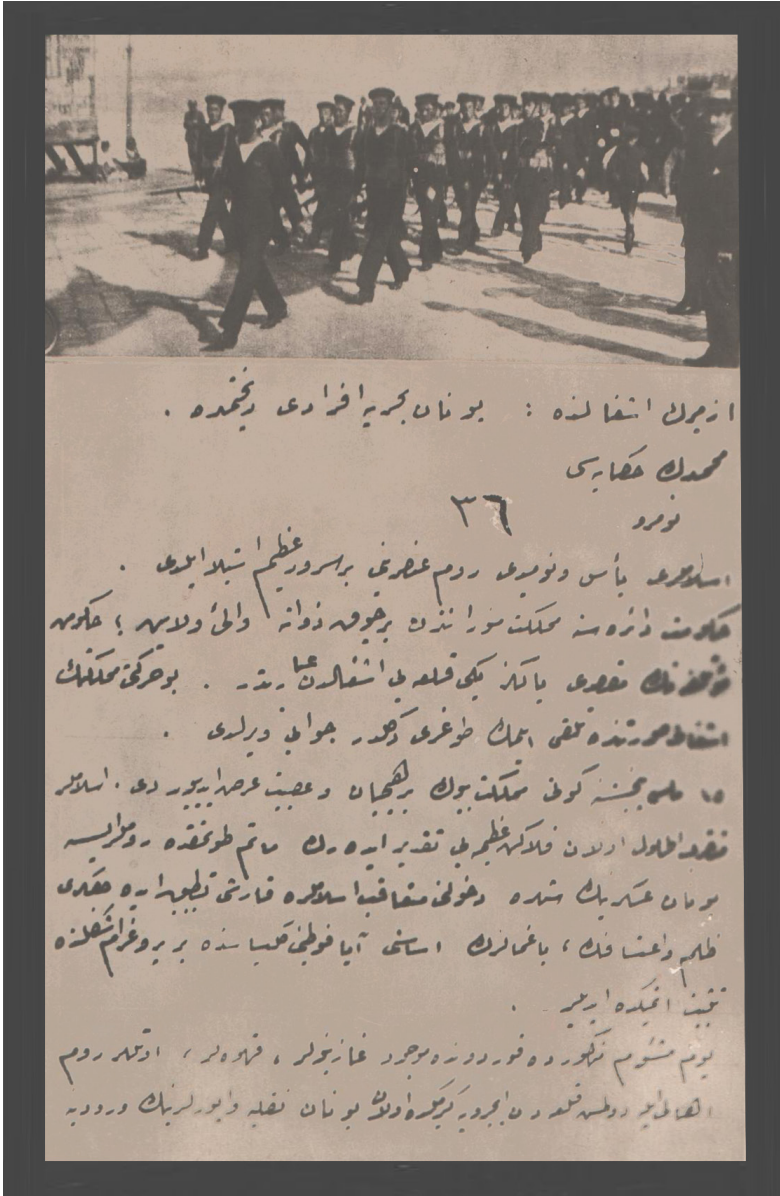 ازميرك اشغالنده : يونان بحريه افرادى ريختمده .
محمدك حكايه سى
نومرو ٣٦
اسلاملرى يأس ونوميدى روم عنصرينى بر سرور عظيم استيلا ايلدى .
حكومت دائره سنه مملكت موراندن بر چوق ذواته والئ ولايت ; حكومت
مقصدى يالكز يكى قلعه يى اشغالدن عبارتدر . بو حركتى مملكتك
اشغالى صورتنده تلقى ايتمك طوغرى دكلدر جوابى ويرلدى .
١٥ مايس پنجشنبه كونى مملكت بيوك بر هيجان و عصبيت عرض ايدييوردى . اسلاملر
اولان فلاكت عظيمه يى تقدير ايده رك ماتم طوتمقده روملر ايسه
يونان عسكرينك شهره دخولنى متعاقب اسلاملره قارشى تطبيق ايده جكلرى
ظلم و اعتسافك ، يغمالرك اساسنى آيا فوطنى كليساسنده بر پروغرام شكلنده
تثبيت ايتمكده ايديلر .
يوم مشئوم مذكورده قوردونده موجود غازينولر ، قهوه لر ، اوتللر روم
اهالى ايله اولان يونان نقليه واپورلرينك ورودينه